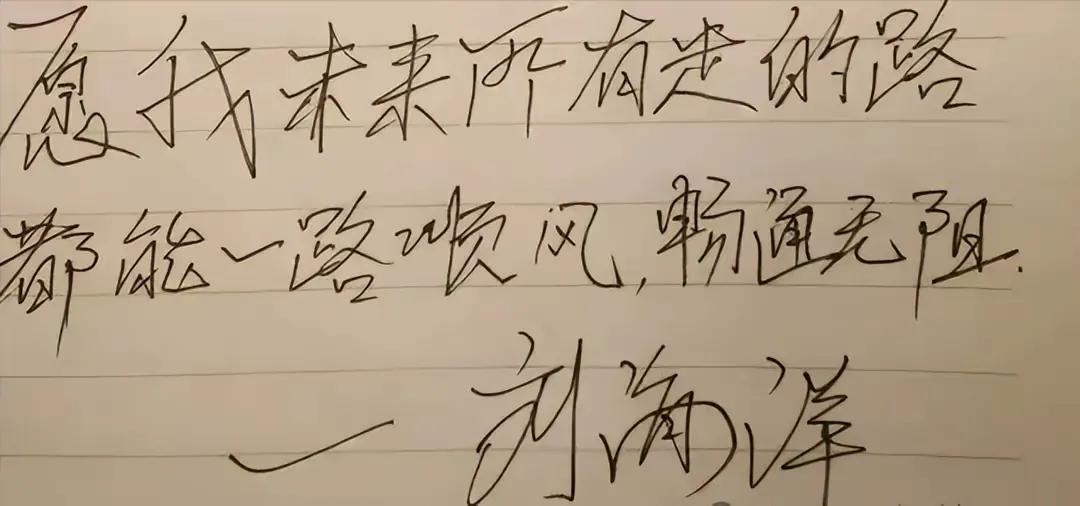 愿我未来所有走的路
都能一路顺风,畅通无阻.
—刘海洋